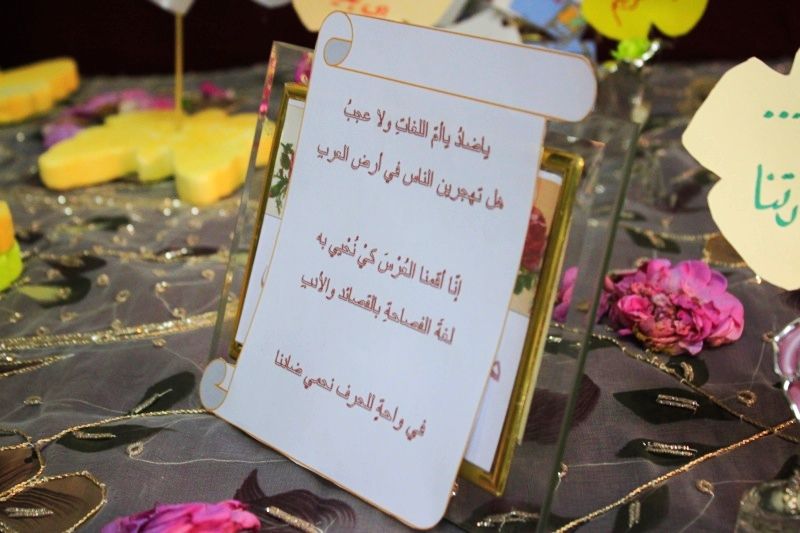 ياضادُ ياأمَّ اللغاتِ ولا عجبُ
هل تهجرين الناس في أرض العربِ
إنّا أقمنا العُرْسَ كيْ نُحْيي به
لغةَ الفصاحةِ بالقصائد والأدبِ
في واحةٍ للحرف نحمي ضادنا